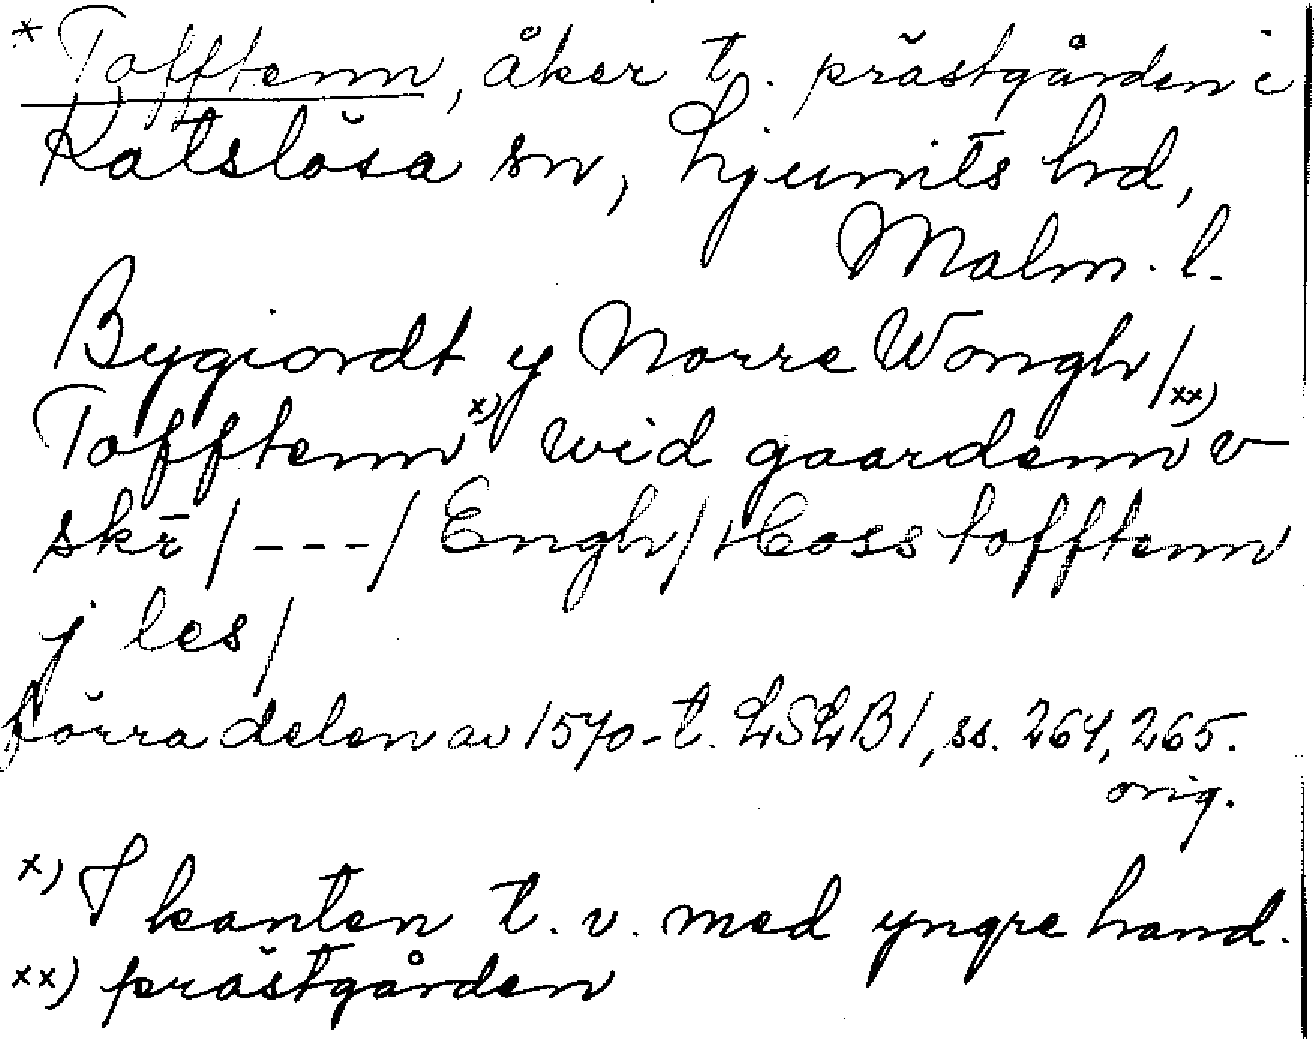 * Tofftenn, åker t. prästgården i
Katslösa sn, Ljunits hd,
Malm. l.
Bygiordt y Norre Wongh/
Tofftenn x) wid gaardenn xx) v
skr̄ / - - - / Engh / Hoss tofftenn
j les /
förra delen av 1570-t. LSLB1, ss. 264, 265.
orig.
x) I kanten t. v. med yngre hand.
xx) prästgården